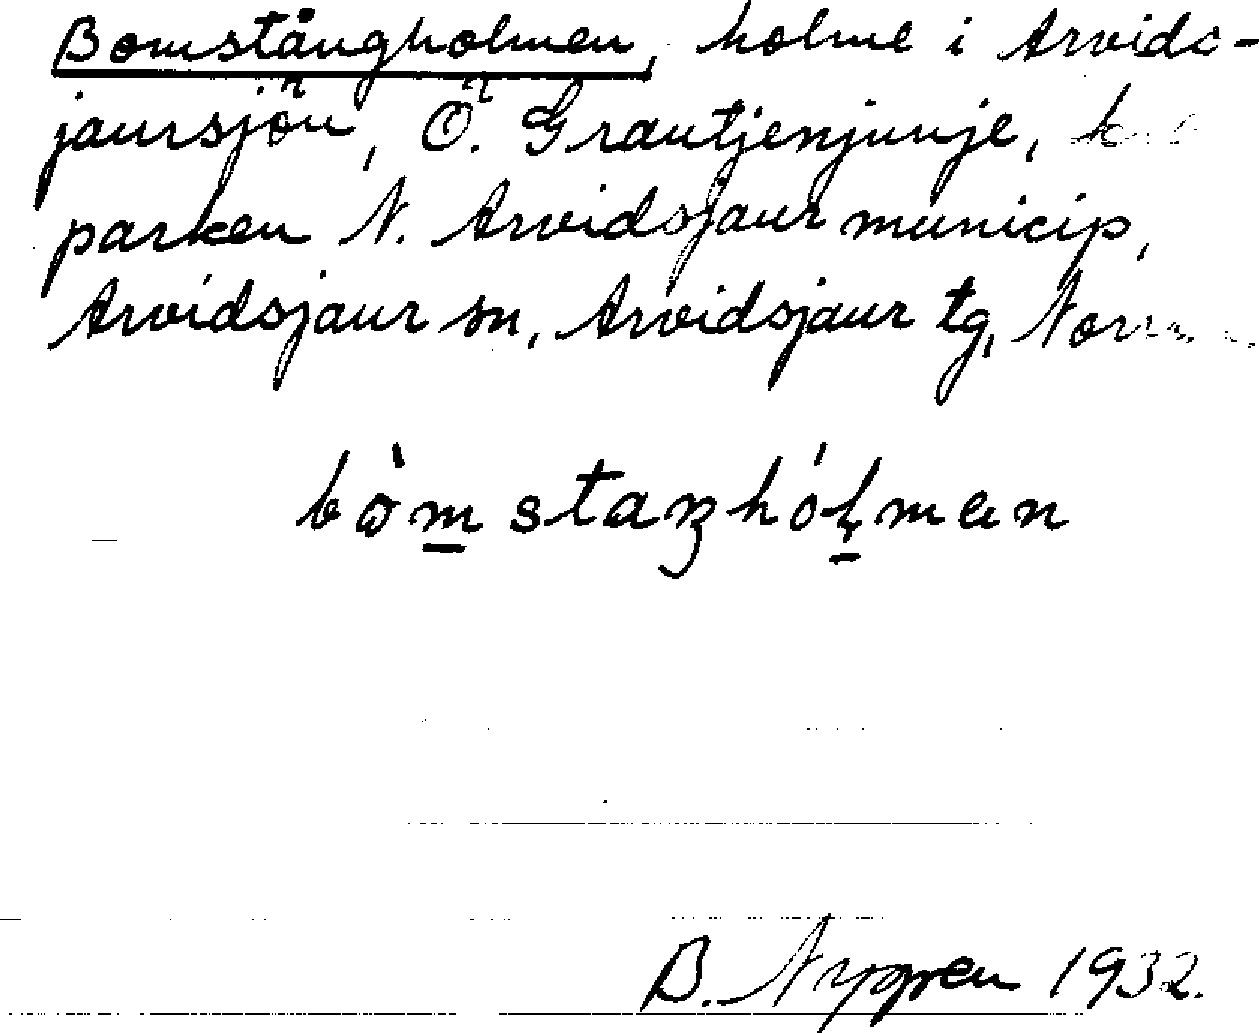 Bomstångholmen, holme i Arvids-
jaursjön, Ö. Grautjenjunje,
parken N. Arvidsjaur municip,
Arvidsjaur sn, Arvidsjaur tg,
bòmstaŋhólmen
B. Nygren 1932.